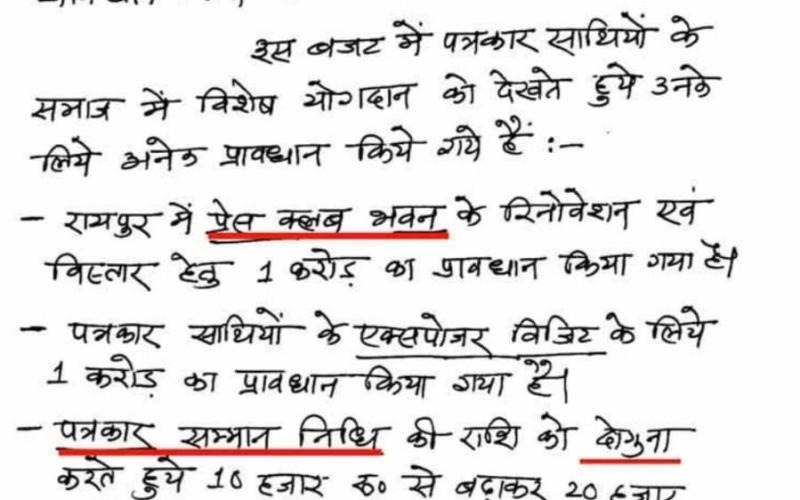 इस बजट में पत्रकार साथियों के
समाज में विशेष योगदान को देखते हुये उनके
लिये अनेक प्रावधान किये गये हैं :-
- रायपुर में प्रेस क्लब भवन के रिनोवेशन एवं
विस्तार हेतु 1 करोड़ का प्रावधान किया गया है।
- पत्रकार साथियों के एक्सपोजर विजिट के लिये
1 करोड़ का प्रावधान किया गया है।
- पत्रकार सम्मान निधि की राशि को दोगुना
करते हुये 10 हजार रु० से बढ़ाकर 20 हजार